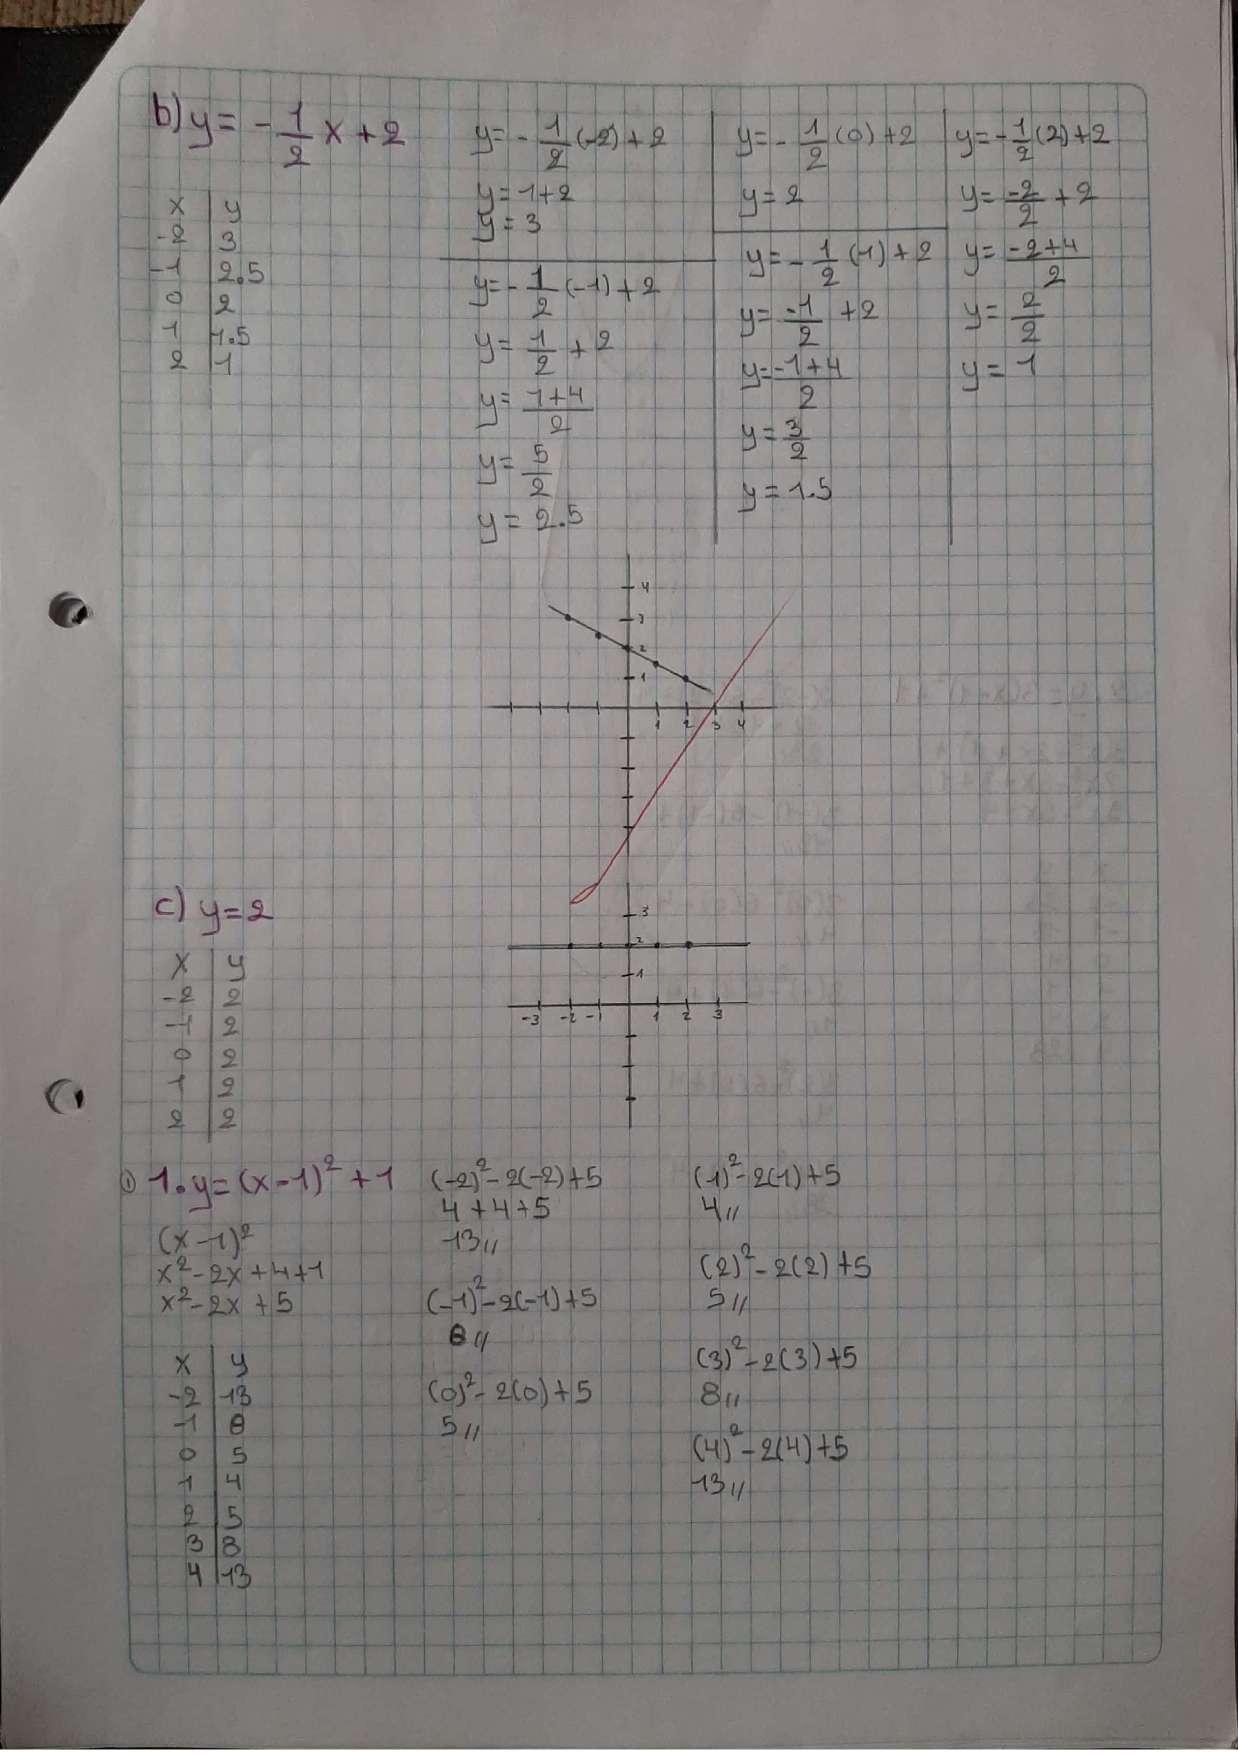 b) y = -1/2 x + 2
x | y
-2 | 3
-1 | 2.5
0 | 2
1 | 1.5
2 | 1
y = -1/2 (-2) + 2
y = 1+2
y = 3
y = -1/2 (-1) + 2
y = 1/2 + 2
y = 1+4/2
y = 5/2
y = 2.5
y = -1/2 (0) + 2
y = 2
y = -1/2 (1) + 2
y = -1/2 + 2
y = -1+4/2
y = 3/2
y = 1.5
y = -1/2 (2) + 2
y = -2/2 + 2
y = -2+4/2
y = 2/2
y = 1
4
3
2
1
1 2 3 4
c) y = 2
x | y
-2 | 2
-1 | 2
0 | 2
1 | 2
2 | 2
3
2
1
-3 -2 -1 1 2 3
① 1. y = (x-1)² + 1
(x-1)²
x²-2x+4+1
x²-2x+5
x | y
-2 | 13
-1 | 8
0 | 5
1 | 4
2 | 5
3 | 8
4 | 13
(-2)²-2(-2)+5
4+4+5
13//
(-1)²-2(-1)+5
8//
(0)²-2(0)+5
5//
(1)²-2(1)+5
4//
(2)²-2(2)+5
5//
(3)²-2(3)+5
8//
(4)²-2(4)+5
13//